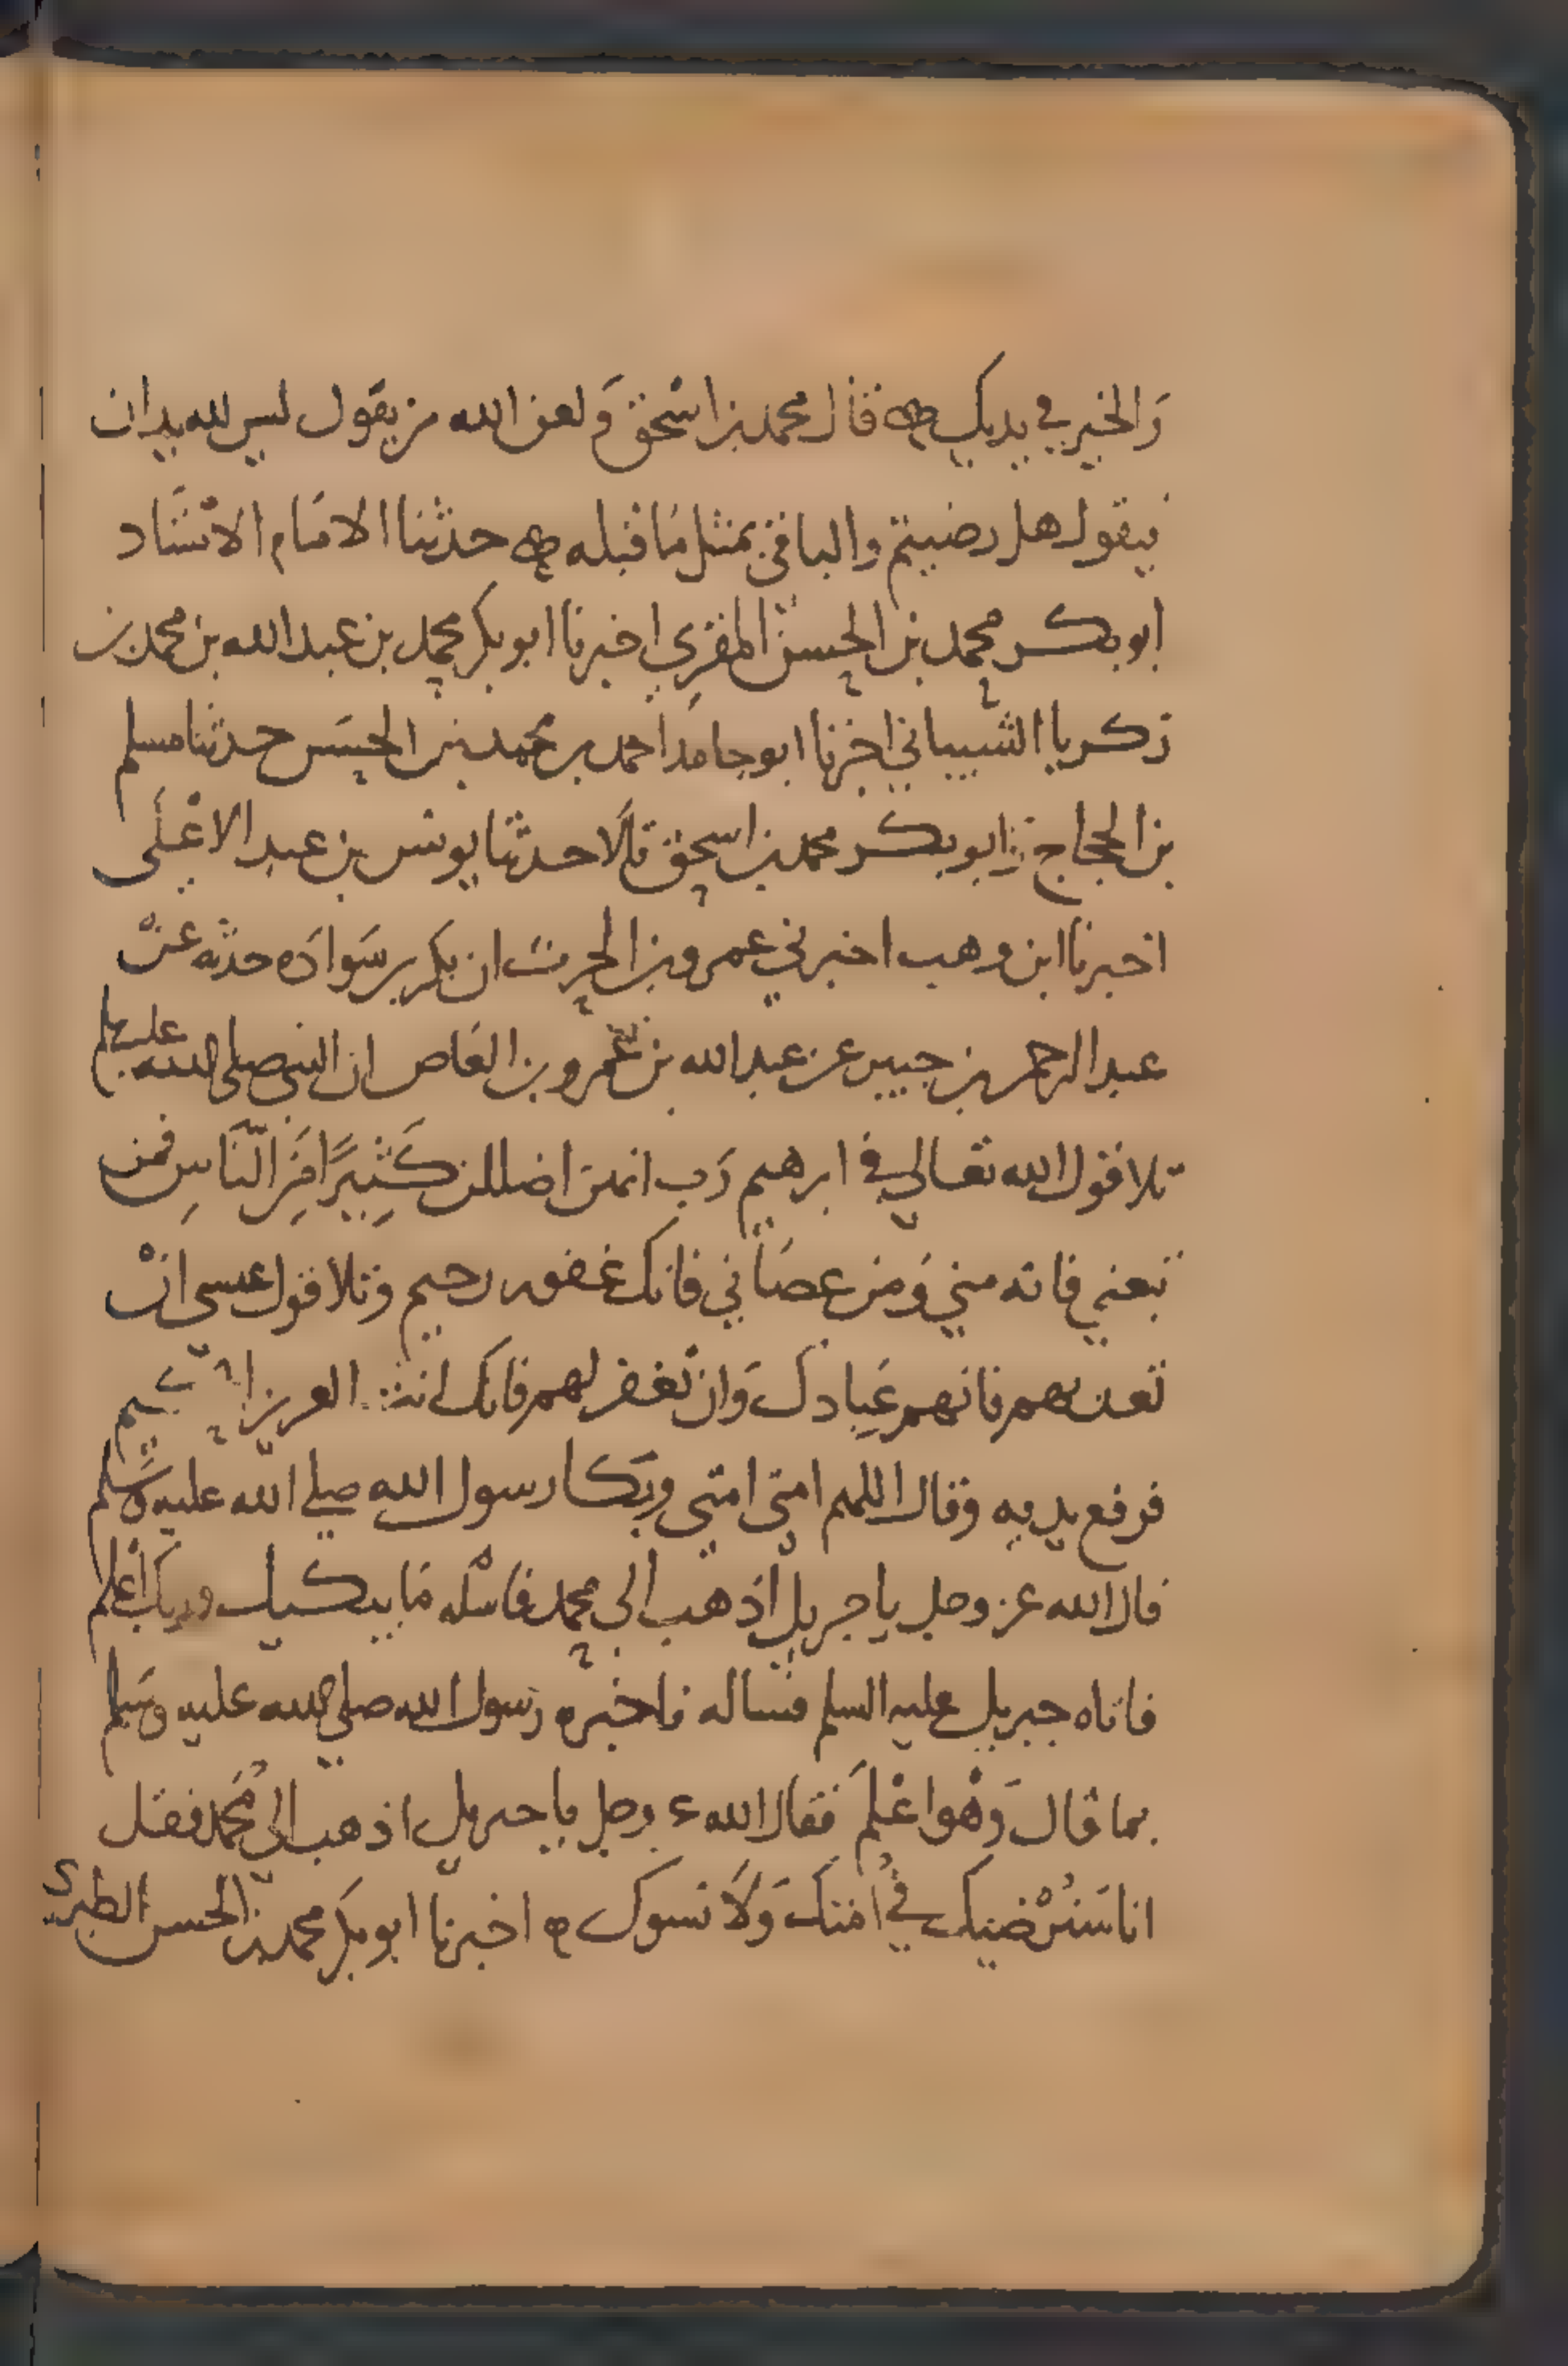 وَالخير في يديك قال محمد بن اسحق وَلعن الله من يقول ليس لله يدان
فيقول هل رضيتم والباقي بمثل مَا قبله حدثنا الامَام الاسْتَاد
ابو بكر محمد بن الحسن المقري اخبرنا ابو بكر محمد بن عبد الله بن محمد بن
زكريا الشيباني اخبرنا ابو حامد احمد بن محمد بن الحسَن حدثنا مسلم
بن الحجاج وابو بكر محمد بن اسحق قالَا حدثنا يونس بن عبد الاعْلَى
اخبرنا ابن وهب اخبرني عمرو بن الحرث ان بكر بن سَوادَه حدثه عنْ
عبد الرحمن بن جبير عن عبد الله بن عمرو بن العَاص ان النبي صلى الله عليه وسلم
تلا قول الله تعالى في ابرهيم رَب انهن اضللن كَثِيرًا مِنَ النَّاسِ فمن
تبعني فانه مني وَمن عصَاني فانك غفور رحيم وتلا قول عيسى انْ
تعذبهم فانهم عِبادك وَان تغفر لهم فانك انت العزيز
فرفع يديه وقال اللهم امتي امتي وبَكا رسول الله صلى الله عليه وسَلم
قال الله عز وجل يا جبريل اذهب الى محمد فاسْله مَا يبكيك وربك أعْلم
فاتاه جبريل عليه السلم فساله فاخبره رسول الله صلى الله عليه وسَلم
بما قال وَهْو اعْلمَ فقال الله عز وجل يا جبريل اذهب الى مُحَمد فقل
انا سَنُرْضيك في اُمتك وَلَا نسوك اخبرنا ابو بكر محمد بن الحسن الطبري